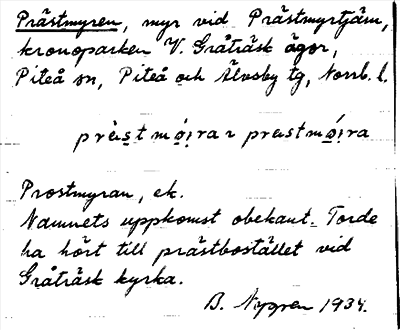 Prästmyren, myr vid Prästmyrtjärn,
kronoparken V. Gråträsk ägor,
Piteå sn, Piteå och Älvsby tg, Norrb. l.
prèstmøira ~ præstmǿira
Prostmyran, ek.
Namnets uppkomst obekant. Torde
ha hört till prästbostället vid
Gråträsk kyrka.
B. Nygren 1934.